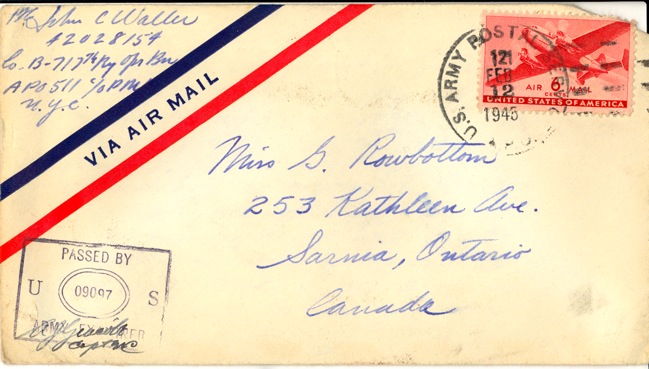 Pvt John C Waller
42028154
Co. B-717th Ry Op Bn
APO 511 c/o PM
N.Y.C.
VIA AIR MAIL
U.S. ARMY POSTAL
121
FEB
12
1945
AIR 6 MAIL
CENTS
UNITED STATES OF AMERICA
Miss G. Rowbottom
253 Kathleen Ave.
Sarnia, Ontario
Canada
PASSED BY
U 09097 S
ARMY EXAMINER